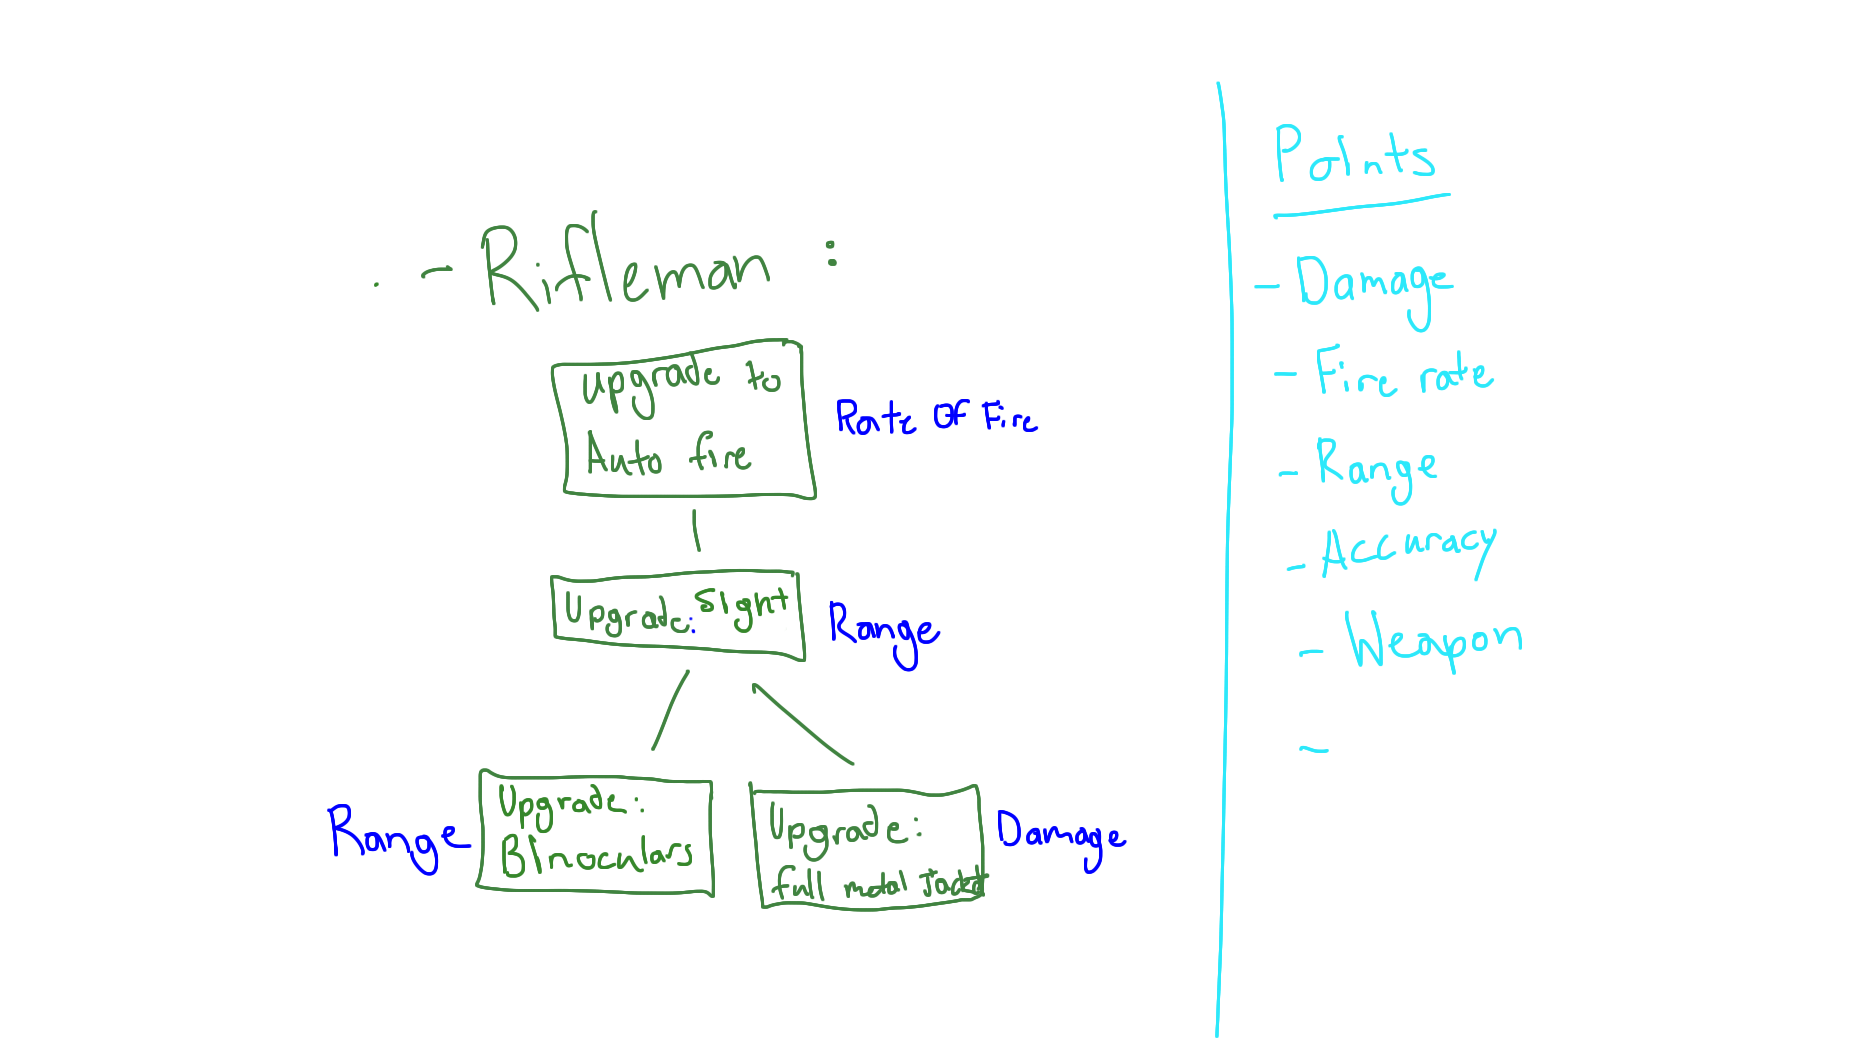 - Rifleman :
upgrade to
Auto fire
Rate Of Fire
Upgrade: Sight
Range
Range
Upgrade:
Binoculars
Upgrade:
full metal Jacket
Damage
Points
- Damage
- Fire rate
- Range
- Accuracy
- Weapon
-